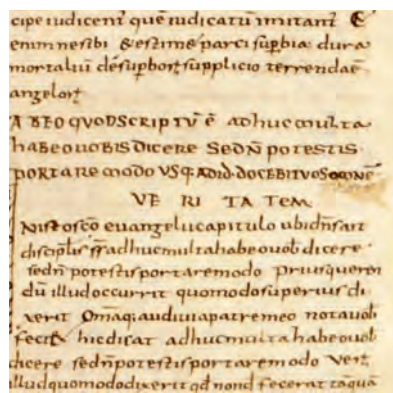 cipe iudicent quē iudicatū imitant̄ &
enim ne sibi & estimē parci suꝑbia dura
mortaliū de suꝑborꝝ supplicio terrendaē
angelorꝝ
A BEO QVOD SCRIPTṼ Ē adhuc multa
habeo uobis dicere Sed n̄ potestis
portare modo USQ; AD ID DOCEBIT VOS OM̄NĒ
VE RI TA TEM
Nisto sc̄o euangelii capitulo ubi dn̄s ait
discipulis adhuc multa habeo uob dicere
sed n̄ potestis portare modo prius queren
dū illud occurrit quomodo superius di
xerit Omaq; audiui a patre meo nota uob
feci hic dicat adhuc multa habeo uob
dicere sed n̄ potestis portare modo Vert̄
illud quomodo dixerit qd nond fecerat tāquā